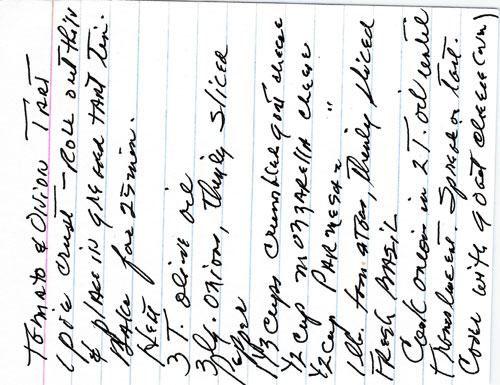 TOMATO & ONION TART
1 pie crust - ROLL out thin
& place in greased TART tin.
Bake for 25 min.
3 T. olive oil
3 lg. onions, thinly sliced
Pepper
1 1/3 cups crumbled goat cheese
1/2 cup mozzarella cheese
1/2 cup PARMesan "
1 lb. tomatoes, thinly sliced
FRESH BASIL
Cook onion in 2 T. oil until
translucent. Spread on tart.
Cover with goat cheese